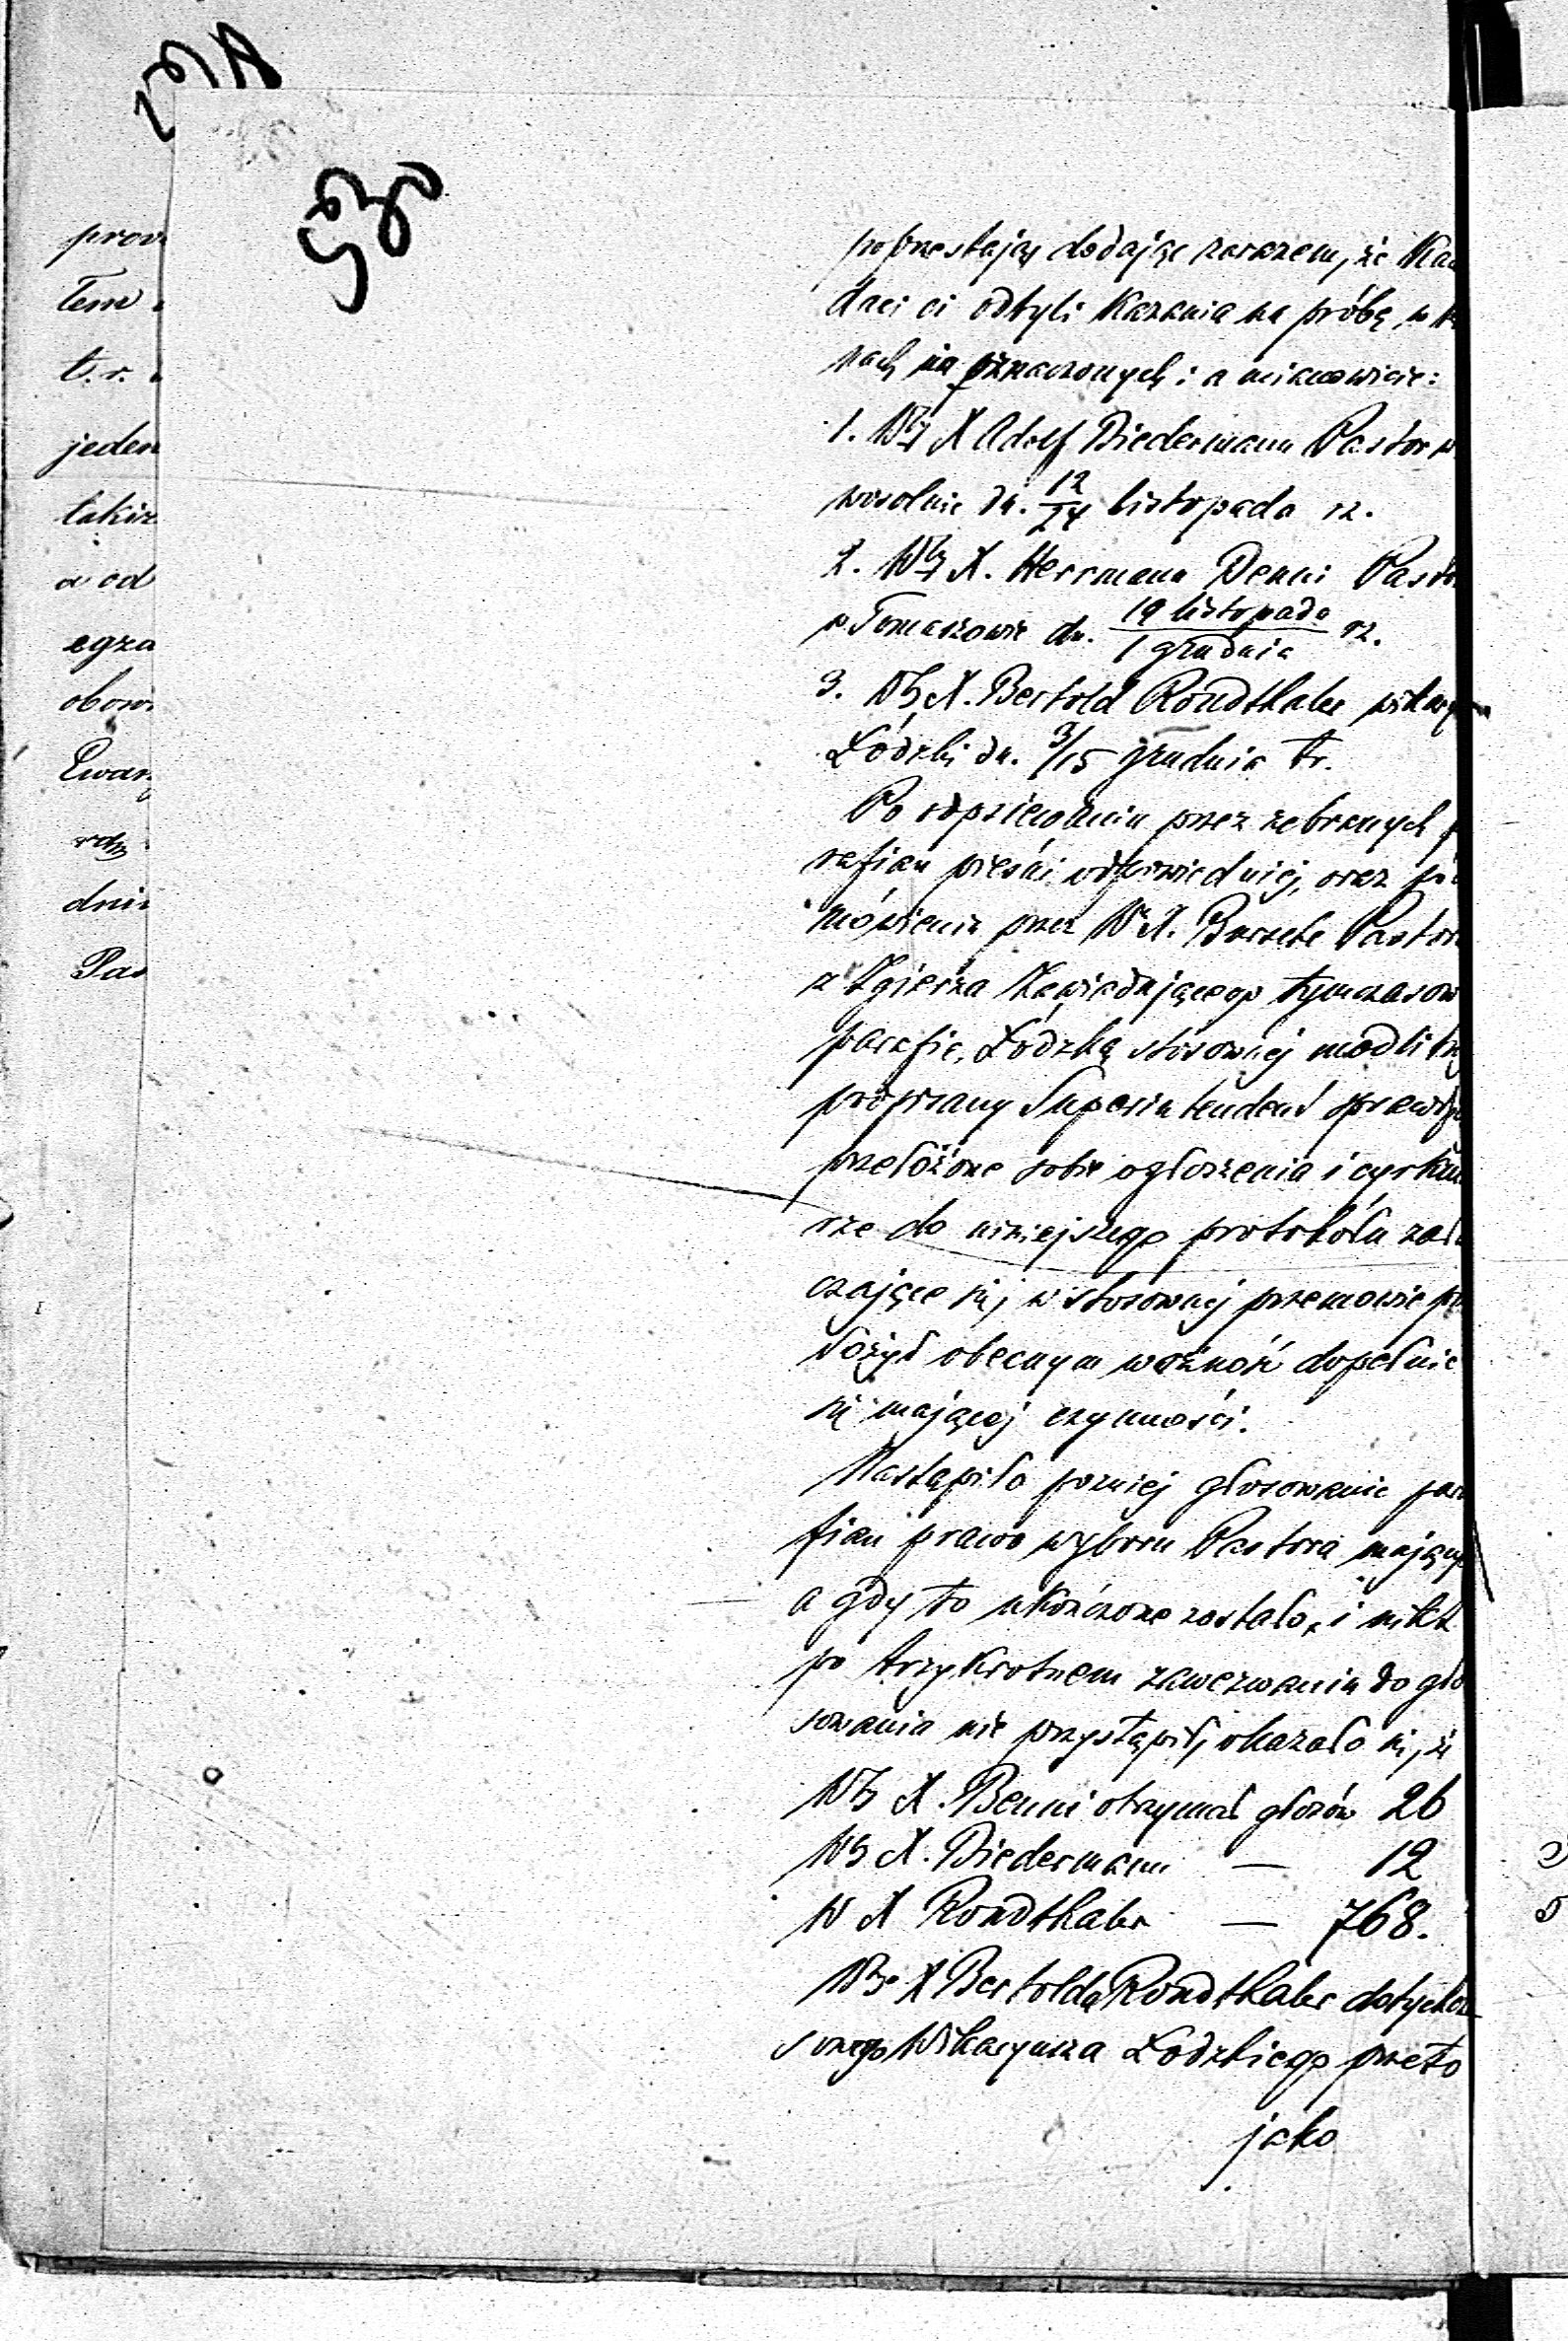 prow
Tem
t. r.
jeden
takiz
a od
egza
obow
Ewan
dni
Pas
poprzestając dodając zarazem, że Kan
daci ci odbyli Kazania na próbę, w
nach oznaczonych i a mianowicie:
1. X Adolf Biedermann Pastor w
dn. 12/24 listopada rz.
2. X. Herrmann Benni Pasto
w Tomaszowie dn. 19 listopada / 1 grudnia rz.
3. X. Bertold Rondthaler wikary
Łódzki dn. 3/15 grudnia tr.
Po odpsiewaniu przez zebranych p
rafian pieśni odpowiedniej, oraz
mówieniu przez W X. Bursche Pastora
z Zgierza Zawiadującego tymczasow
parafią Łódzką stosownej modlitwy
podpisany Superintendent sprawdził
przełożone sobie ogłoszenia i cyrku
rze do niniejszego protokółu załą
czające się, w stosownej przemowie prze
łożył obecnym ważność dopełnić
się mającej czynności.
Nastąpiło pozniej głosowanie para
fian prawo wyboru Pastora mających
a gdy to ukończone zostało, i nikt
po trzykrotnem zawezwaniu do gło
sowania nie przystąpił, okazało się, że
X. Benni otrzymał głosów 26
X. Biedermann — 12
W X Rondthaler — 768.
X Bertolda Rondthaler dotychcza
sowego Wikaryusza Łódzkiego przeto
jako